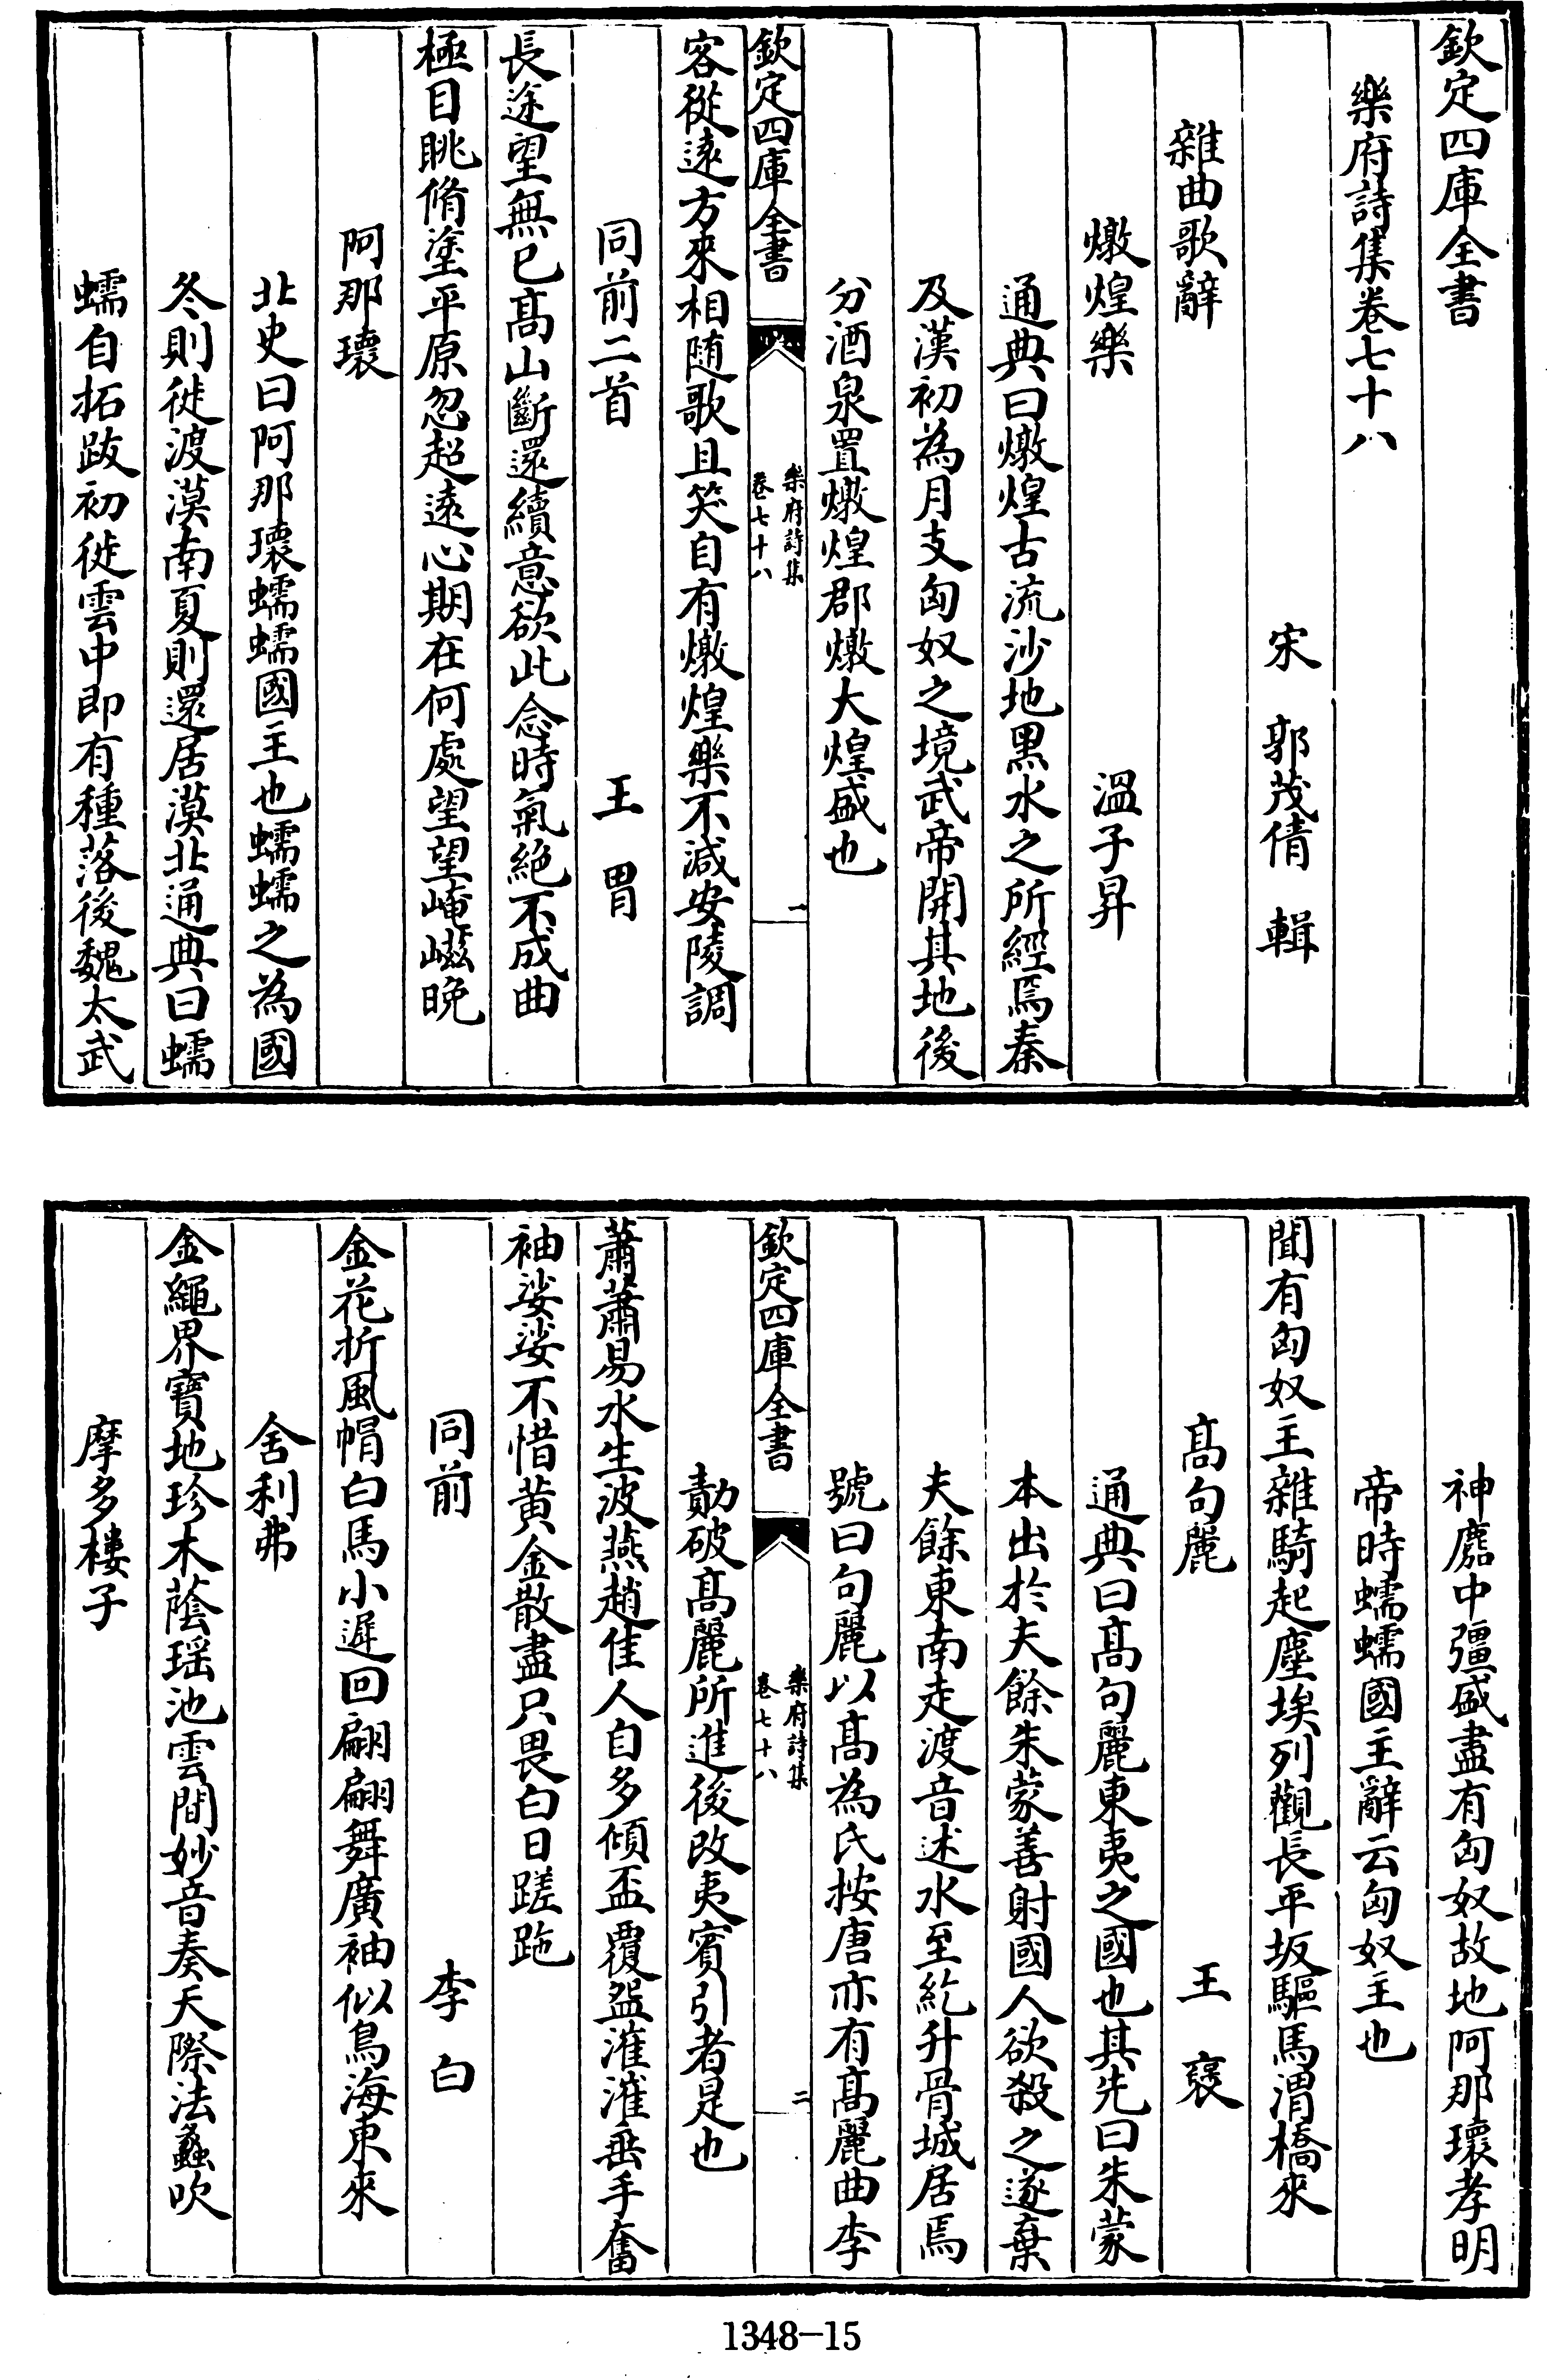 欽定四庫全書
樂府詩集卷七十八
宋　郭茂倩　輯
雜曲歌辭
燉煌樂　溫子昇
通典曰燉煌古流沙地黑水之所經焉秦
及漢初為月支匈奴之境武帝開其地後
分酒泉置燉煌郡燉大煌盛也
欽定四庫全書
樂府詩集
卷七十八
一
客從遠方來相随歌且笑自有燉煌樂不減安陵調
同前二首　王胄
長途望無已髙山斷還續意欲此念時氣絶不成曲
極目眺脩塗平原忽超遠心期在何處望望崦嵫晚
阿那瓌
北史曰阿那瓌蠕蠕國主也蠕蠕之為國
冬則徙渡漠南夏則還居漠北通典曰蠕
蠕自拓跋初徙雲中即有種落後魏太武
神䴥中彊盛盡有匈奴故地阿那瓌孝明
帝時蠕蠕國主辭云匈奴主也
聞有匈奴主雜騎起塵埃列觀長平坂驅馬渭橋來
髙句麗　王褒
通典曰髙句麗東夷之國也其先曰朱蒙
本出於夫餘朱蒙善射國人欲殺之遂棄
夫餘東南走渡音述水至紇升骨城居焉
號曰句麗以髙為氏按唐亦有髙麗曲李
欽定四庫全書
樂府詩集
卷七十八
二
勣破髙麗所進後改夷賓引者是也
蕭蕭易水生波燕趙佳人自多傾盃覆盌漼漼垂手奮
袖娑娑不惜黄金散盡只畏白日蹉跎
同前　李白
金花折風帽白馬小遲回翩翩舞廣袖似鳥海東來
舍利弗
金繩界寶地珍木蔭瑶池雲間妙音奏天際法蠡吹
摩多樓子
1348-15